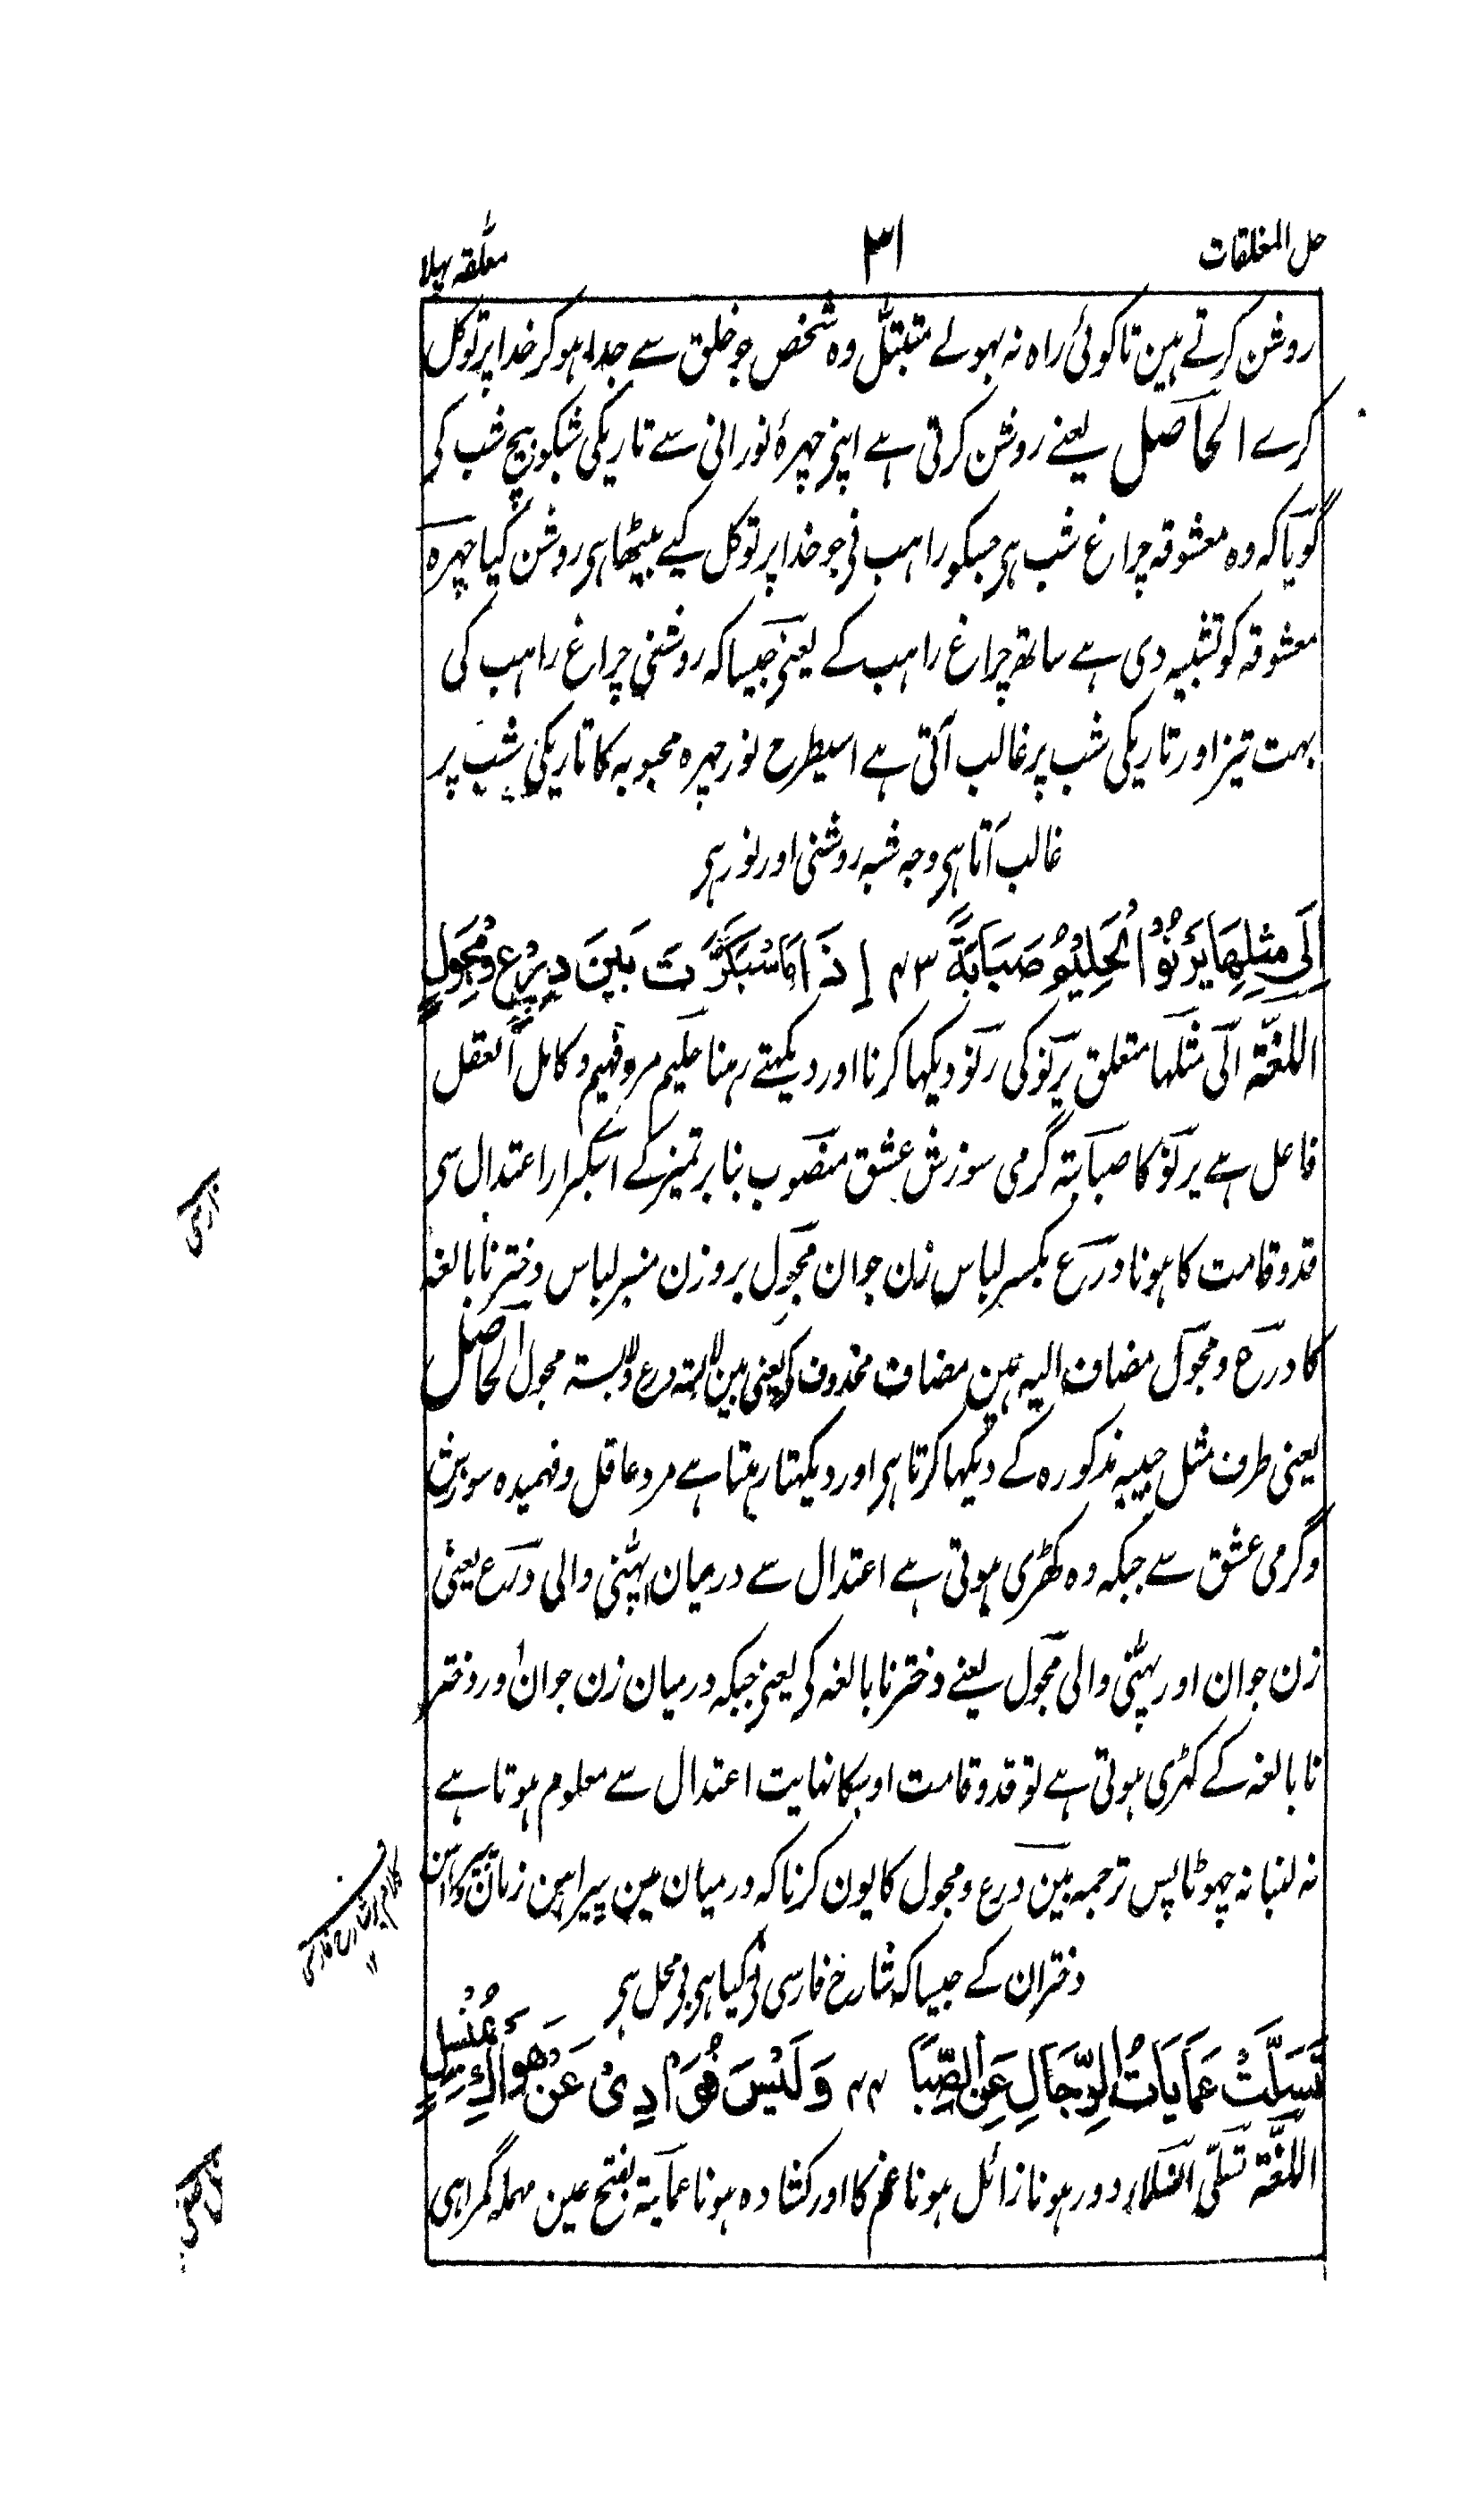 حل المغلقات ۳۱ معلقہ پہلا
روشن کرتے ہین تا کوئی راہ نہ بہولے متبتّل وہ شخص جو خلق سے جدا ہو کر خدا پر توکل
کرے الحاصل یعنے روشن کرتی ہے اپنے چہرۂ نورانی سے تاریکی شبکو بیچ شب کی
گویا کہ وہ معشوقہ چراغ شب ہی جسکو راہب نی جو خدا پر توکل کیے بیٹھا ہی روشن کیا چہرہ
معشوقہ کو تشبیہ دی ہے ساتھ چراغ راہب کے یعنی جیسا کہ روشنی چراغ راہب کی
بہت تیز اور تاریکی شب پر غالب آتی ہے اسیطرح نور چہرہ محبوبہ کا تاریکی شب پر
غالب آتا ہی وجہ شبہ روشنی اور نور ہی
اِلَى مِثلِهَا يَرْنُوْ الْحَلِيْمُ صَبَابَةً ۴۳ إِذَا مَا اسْبَكَرَّتْ بَيْنَ دِرْعٍ وَمِجْوَلٍ
اللغتہ الی مثلہا متعلق یرنو کی رنو دیکہا کرنا اور دیکہتے رہنا حلیم مرد فہیم و کامل العقل
فاعل ہے یرنو کا صبابتہ گرمی سوزش عشق منصوب بنا بر تمیز کے اسبکرار اعتدال سی
قد و قامت کا ہونا درع بکسر لباس زن جوان مجول بر وزن منبر لباس دختر نا بالغہ
کا درع و مجول مضاف الیہ ہین مضاف محذوف کی یعنی بین لابستہ درع و لابستہ مجول الحاصل
یعنی طرف مثل حبیبہ مذکورہ کے دیکہا کرتا ہی اور دیکہتا رہتا ہے مرد عاقل و فہمیدہ سوزش
و گرمی عشق سے جبکہ وہ کھڑی ہوتی ہے اعتدال سے درمیان پہننی والی درع یعنی
زن جوان اور پہننی والی مجول یعنے دختر نا بالغہ کی یعنی جبکہ درمیان زن جوان اور دختر
نا بالغہ کے کہڑی ہوتی ہے تو قد و قامت اوسکا نہایت اعتدال سے معلوم ہوتا ہے
نہ لنبا نہ چہوٹا پس ترجمہ بین درع و مجول کا یون کرنا کہ درمیان مین پیراہن زنان و پیراہن
دختران کے جیسا کہ شارح فارسی نی کیا ہی بی محل ہی
تَسَلَّتْ عَمَايَاتُ الرِّجَالِ عَنِ الصِّبَا ۴۴ وَلَيْسَ فُؤَادِيْ عَنْ هَوَاكِ بِمُنْسَلِ
اللغتہ تسلّی انسلاء دور ہونا زائل ہونا غم کا اور کشادہ ہونا عمایتہ بفتح عین مہملہ گمراہی